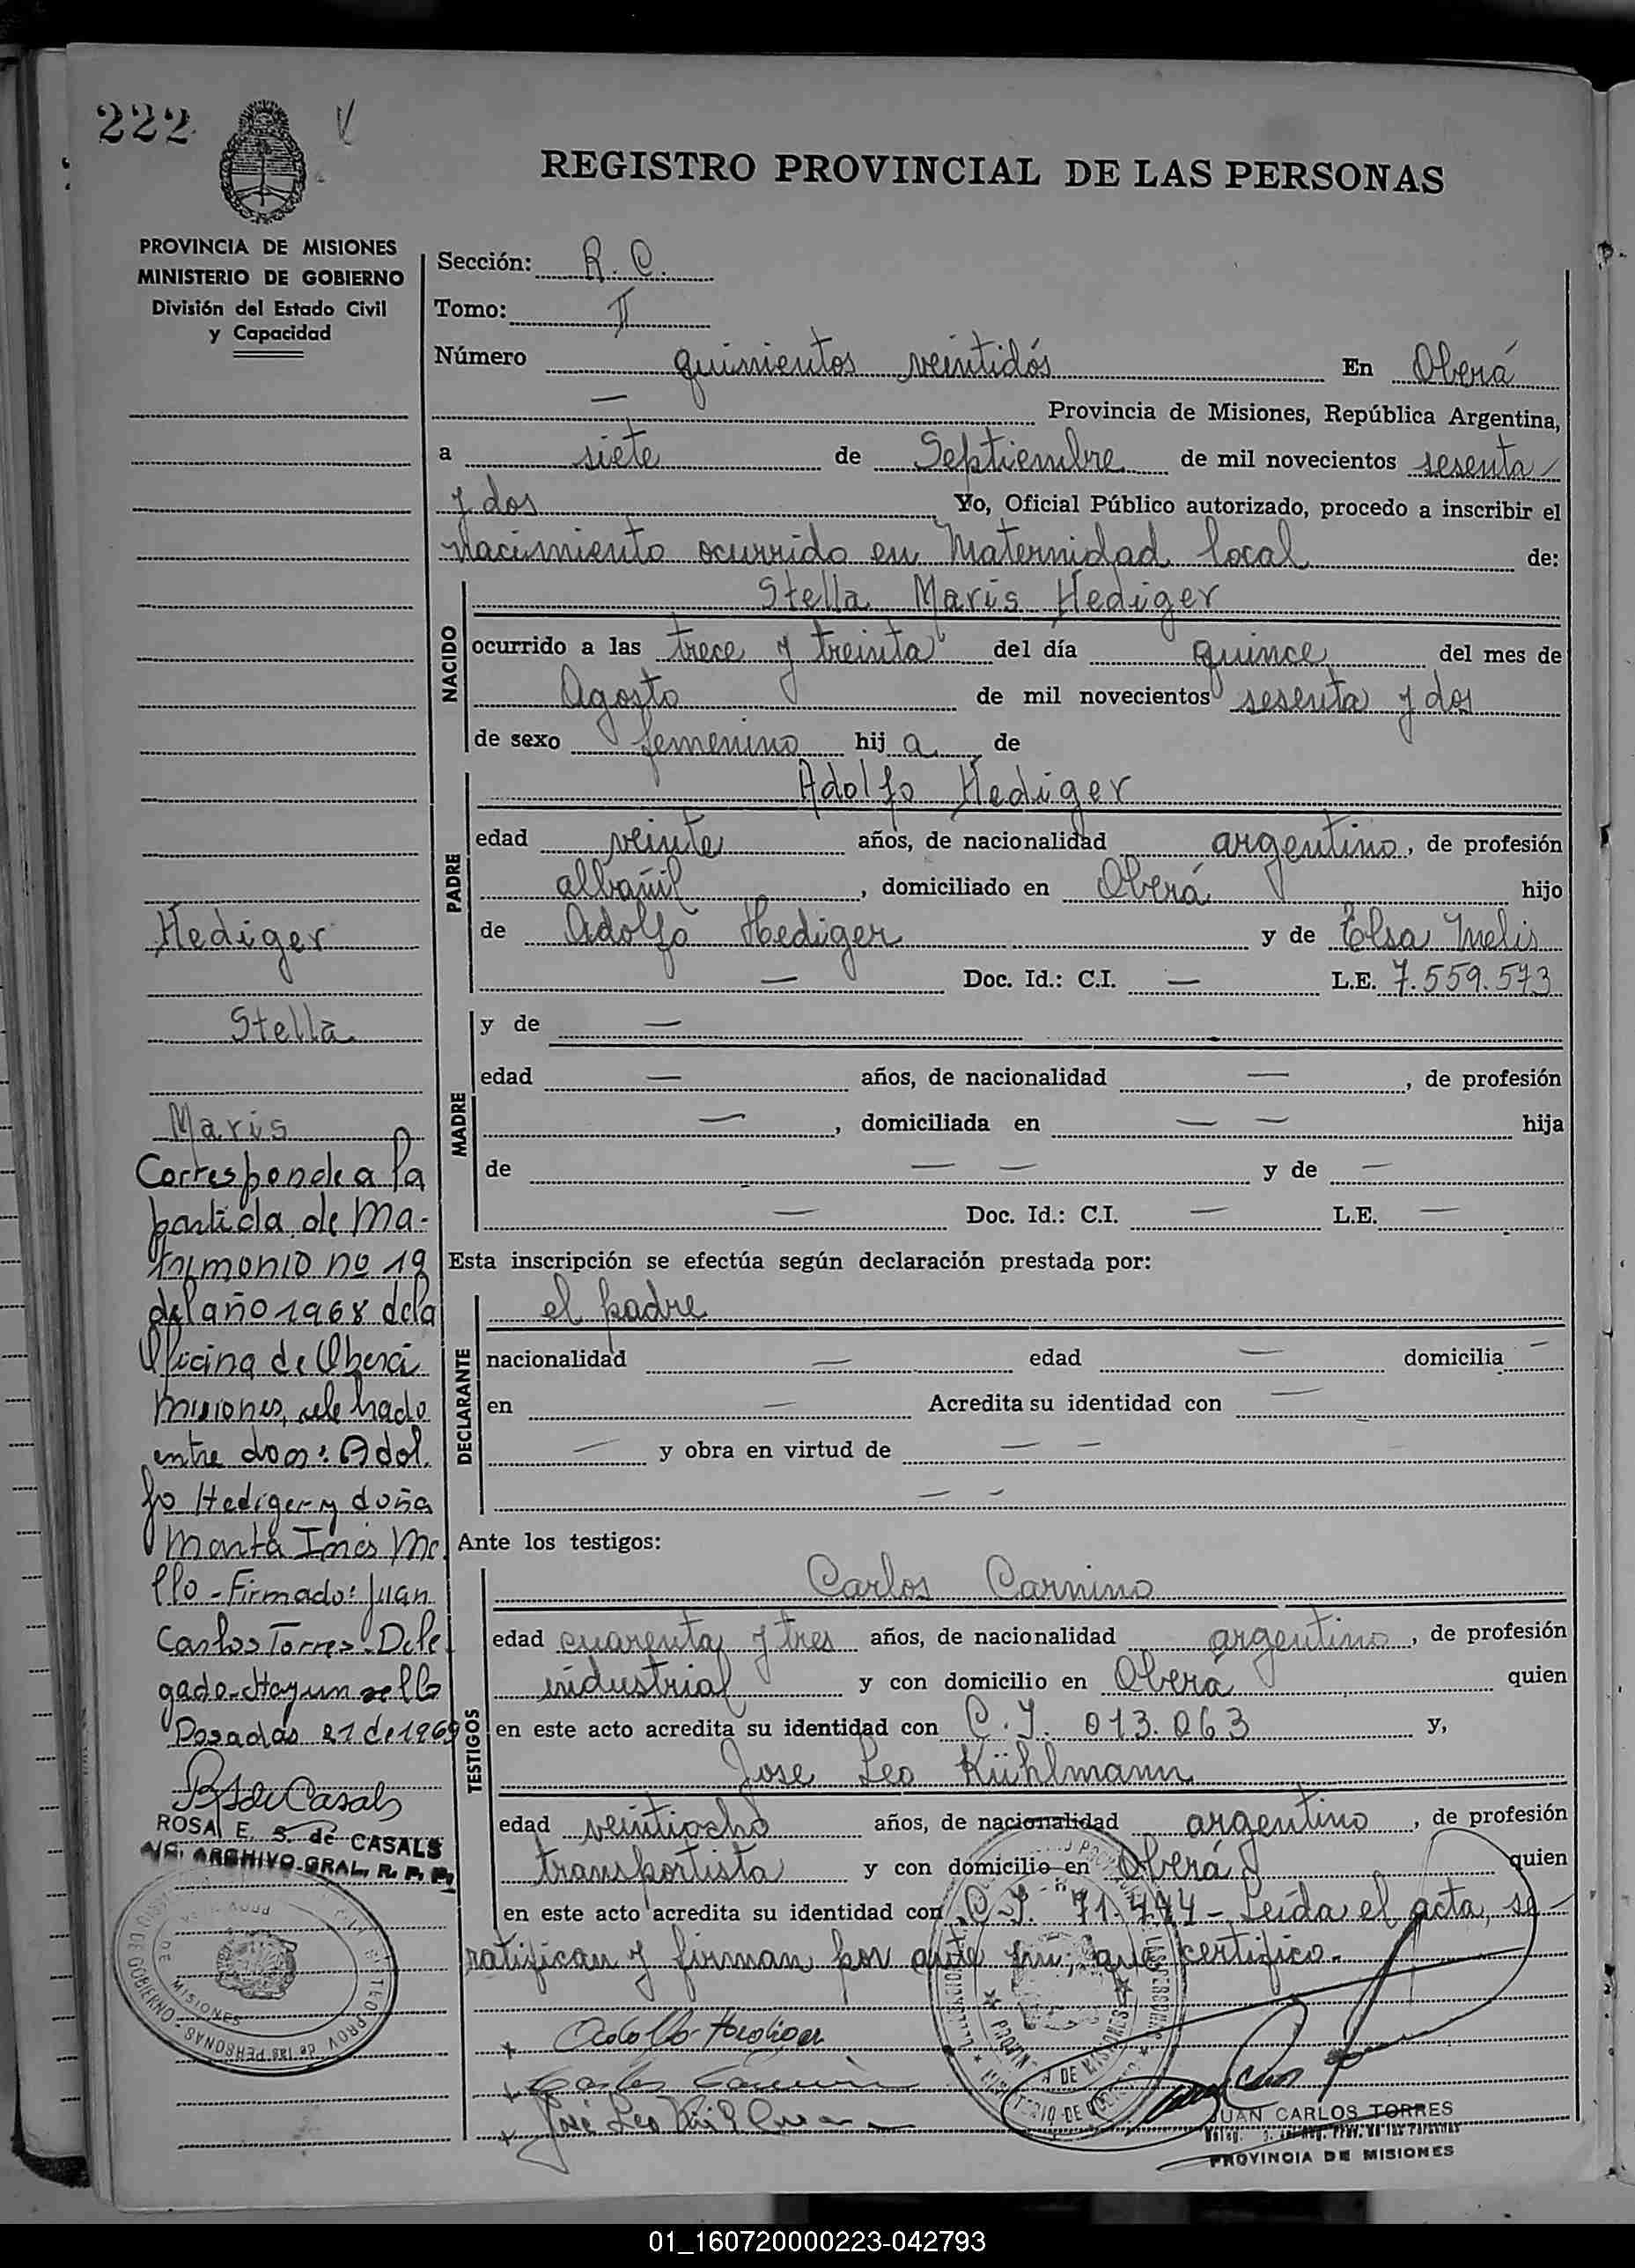 222
REGISTRO PROVINCIAL DE LAS PERSONAS
PROVINCIA DE MISIONES
MINISTERIO DE GOBIERNO
División del Estado Civil
y Capacidad
Sección: R. C.
Tomo: II
Número quinientos veintidós En Oberá
— Provincia de Misiones, República Argentina,
a siete de Septiembre de mil novecientos sesenta
y dos Yo, Oficial Público autorizado, procedo a inscribir el
nacimiento ocurrido en Maternidad local de:
NACIDO
Stella Maris Hediger
ocurrido a las trece y treinta del día quince del mes de
Agosto de mil novecientos sesenta y dos
de sexo femenino hija de
PADRE
Adolfo Hediger
edad veinte años, de nacionalidad argentino, de profesión
albañil, domiciliado en Oberá hijo
de Adolfo Hediger y de Elsa Melis
— Doc. Id.: C.I. — L.E. 7.559.573
MADRE
y de —
edad — años, de nacionalidad —, de profesión
—, domiciliada en — — hija
de — — y de —
— Doc. Id.: C.I. — L.E. —
Esta inscripción se efectúa según declaración prestada por:
DECLARANTE
el padre
nacionalidad — edad — domicilia —
en — Acredita su identidad con —
— y obra en virtud de — —
— -
Ante los testigos:
TESTIGOS
Carlos Carnino
edad cuarenta y tres años, de nacionalidad argentino, de profesión
industrial y con domicilio en Oberá quien
en este acto acredita su identidad con C.I. 013.063 y,
Jose Leo Kühlmann
edad veintiocho años, de nacionalidad argentino, de profesión
transportista y con domicilio en Oberá quien
en este acto acredita su identidad con C.I. 71.444 - Leída el acta, se
ratifican y firman por ante mi, que certifico.-
Adolfo Hediger
Carlos Carnino
José Leo Kühlmann
JUAN CARLOS TORRES
PROVINCIA DE MISIONES
Hediger
Stella
Maris
Corresponde a la
partida de Ma-
trimonio no 19
del año 1968 de la
Oficina de Oberá
Misiones, celebrado
entre don: Adol.
fo Hediger y doña
Marta Inés Me
llo - Firmado: Juan
Carlos Torres - Dele
gado - Hay un sello
Posadas 21 de 1969
ROSA E. S. de CASALS
A/C. ARCHIVO GRAL. R. P. P.
01_160720000223-042793